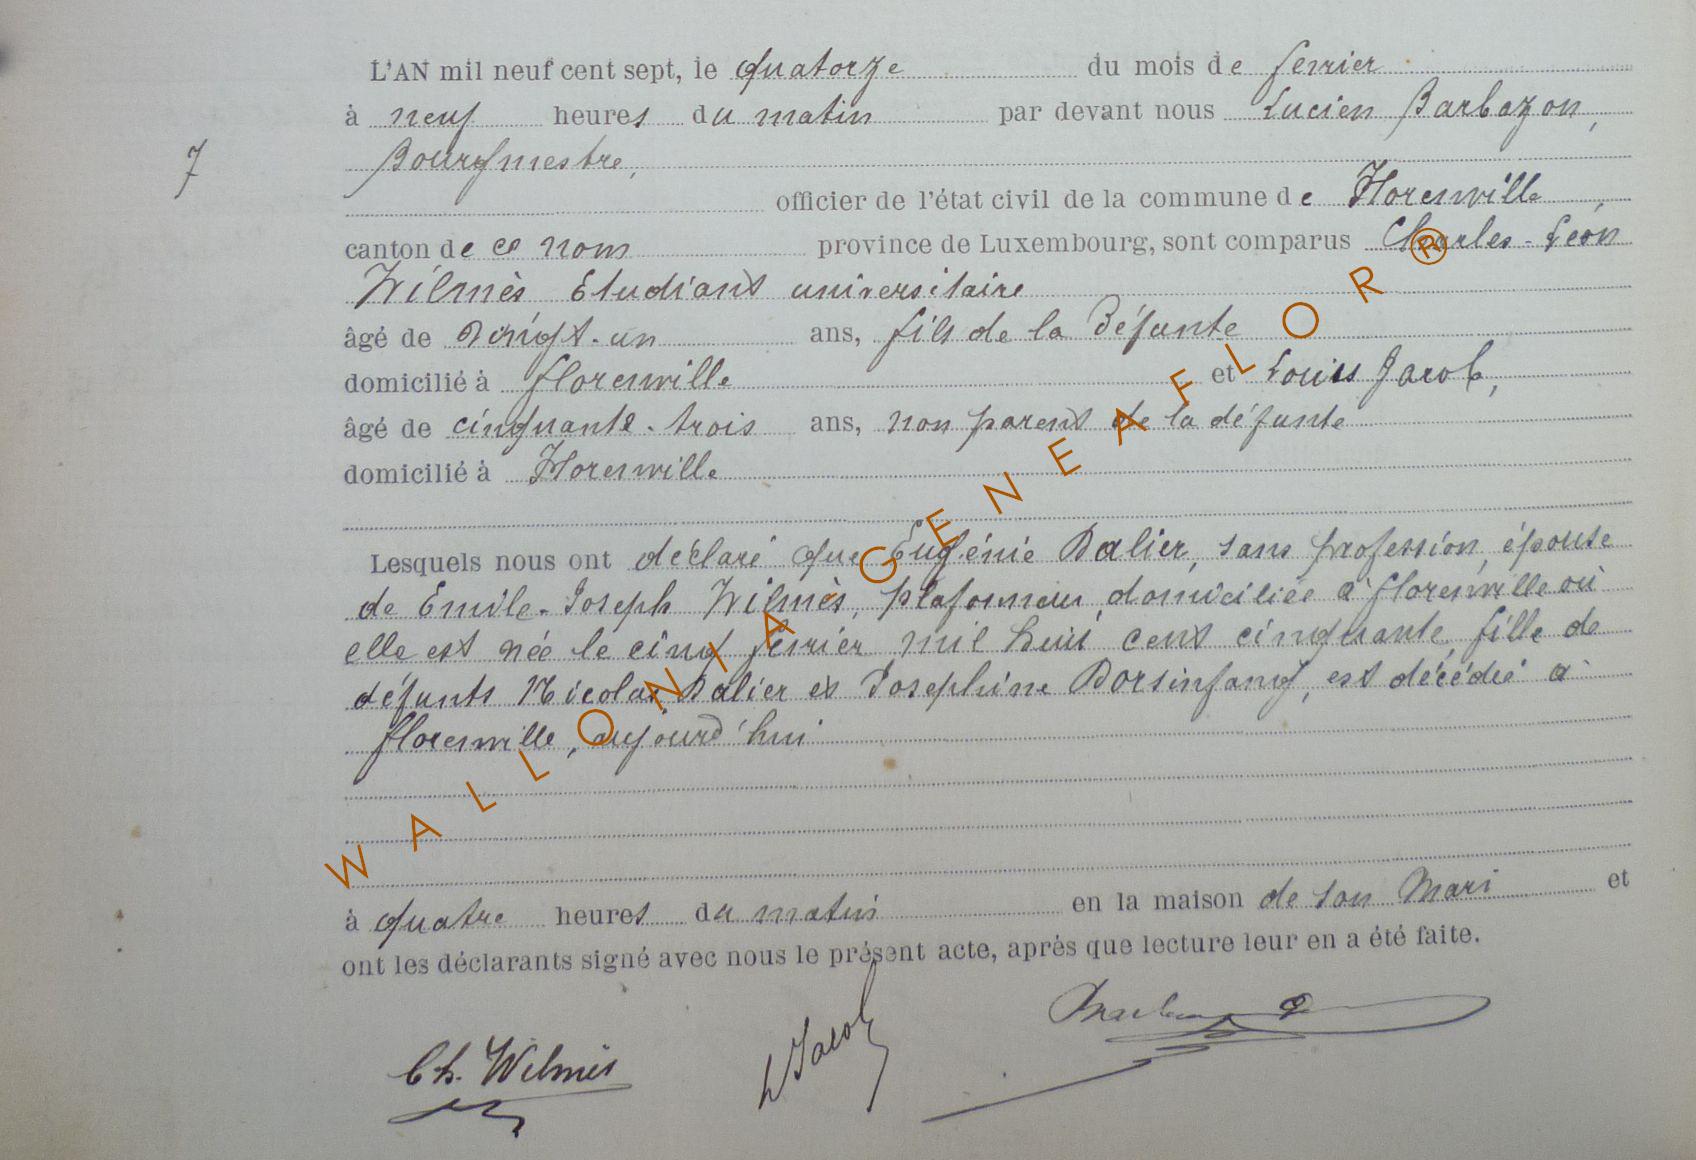 L'AN mil neuf cent sept, le quatorze du mois de fevrier
à neuf heures du matin par devant nous Lucien Barbazon,
7
Bourgmestre,
officier de l'état civil de la commune de Florenville,
canton de ce nom province de Luxembourg, sont comparus Charles-Léon
Wilmès Etudiant universitaire
âgé de vingt-un ans, fils de la Défunte
domicilié à florenville et Louis Jacob,
âgé de cinquante-trois ans, non parent de la défunte
domicilié à Florenville
Lesquels nous ont déclaré que Eugénie Dalier, sans profession, épouse
de Emile-Joseph Wilmès, plafonneur, domiciliée à florenville où
elle est née le cinq fevrier mil huit cent cinquante, fille de
défunts Nicolas Dalier et Josephine Dorsinfang, est décédée à
florenville, aujourd'hui
à quatre heures du matin en la maison de son Mari et
ont les déclarants signé avec nous le présent acte, après que lecture leur en a été faite.
Ch. Wilmès
L Jacob
WALLONIA GENEAFLOR®